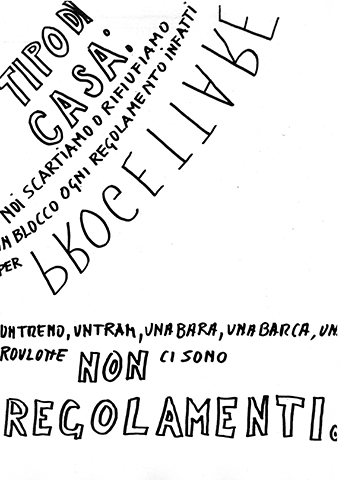 TIPO DI
CASA:
NOI SCARTIAMO O RIFIUFIAMO
IN BLOCCO OGNI REGOLAMENTO INFATTI
PER PROGETTARE
UN TRENO, UN TRAM, UNA BARA, UNA BARCA, UN
ROULOTTE NON CI SONO
REGOLAMENTI.